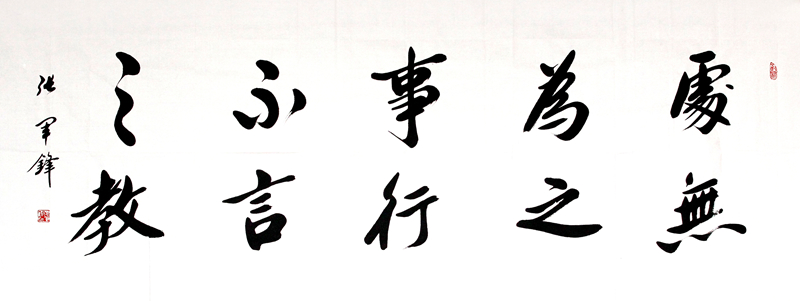 處無
為之
事行
不言
之教
張軍鋒